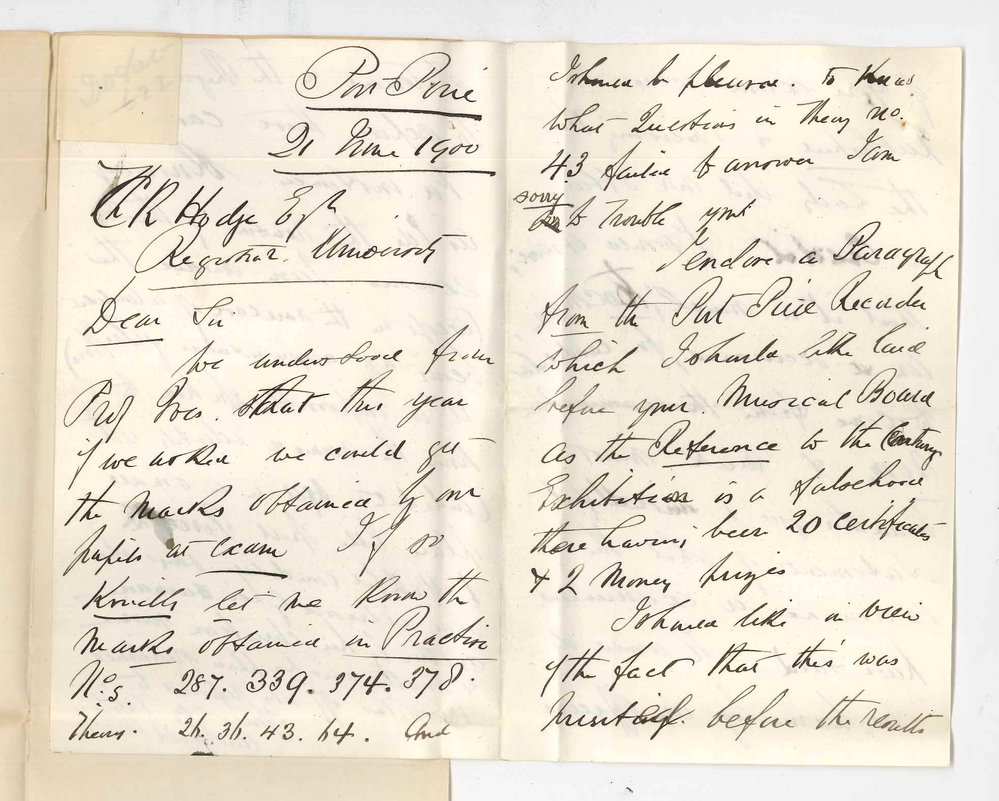 Port Pirie
21 June 1900
C R Hodge Esqr
Registrar. University
Dear Sir
We understood from
Prof Ives. that this year
if we asked we could get
the marks obtained by our
pupils at exam If so
Kindly let me know the
marks obtained in Practice
Nos. 287. 339. 374. 378.
Theory. 26. 36. 43. 64. And
I should be pleased. to know
what Questions in Theory no.
43 failed to answer I am
sorry to trouble you
I enclose a Paragraph
from the Port Pirie Recorder
which I should like laid
before your Musical Board
as the Reference to the Century
Exhibition is a falsehood
there having been 20 certificates
& 2 Money prizes
I should like in view
of the fact that this was
before the results